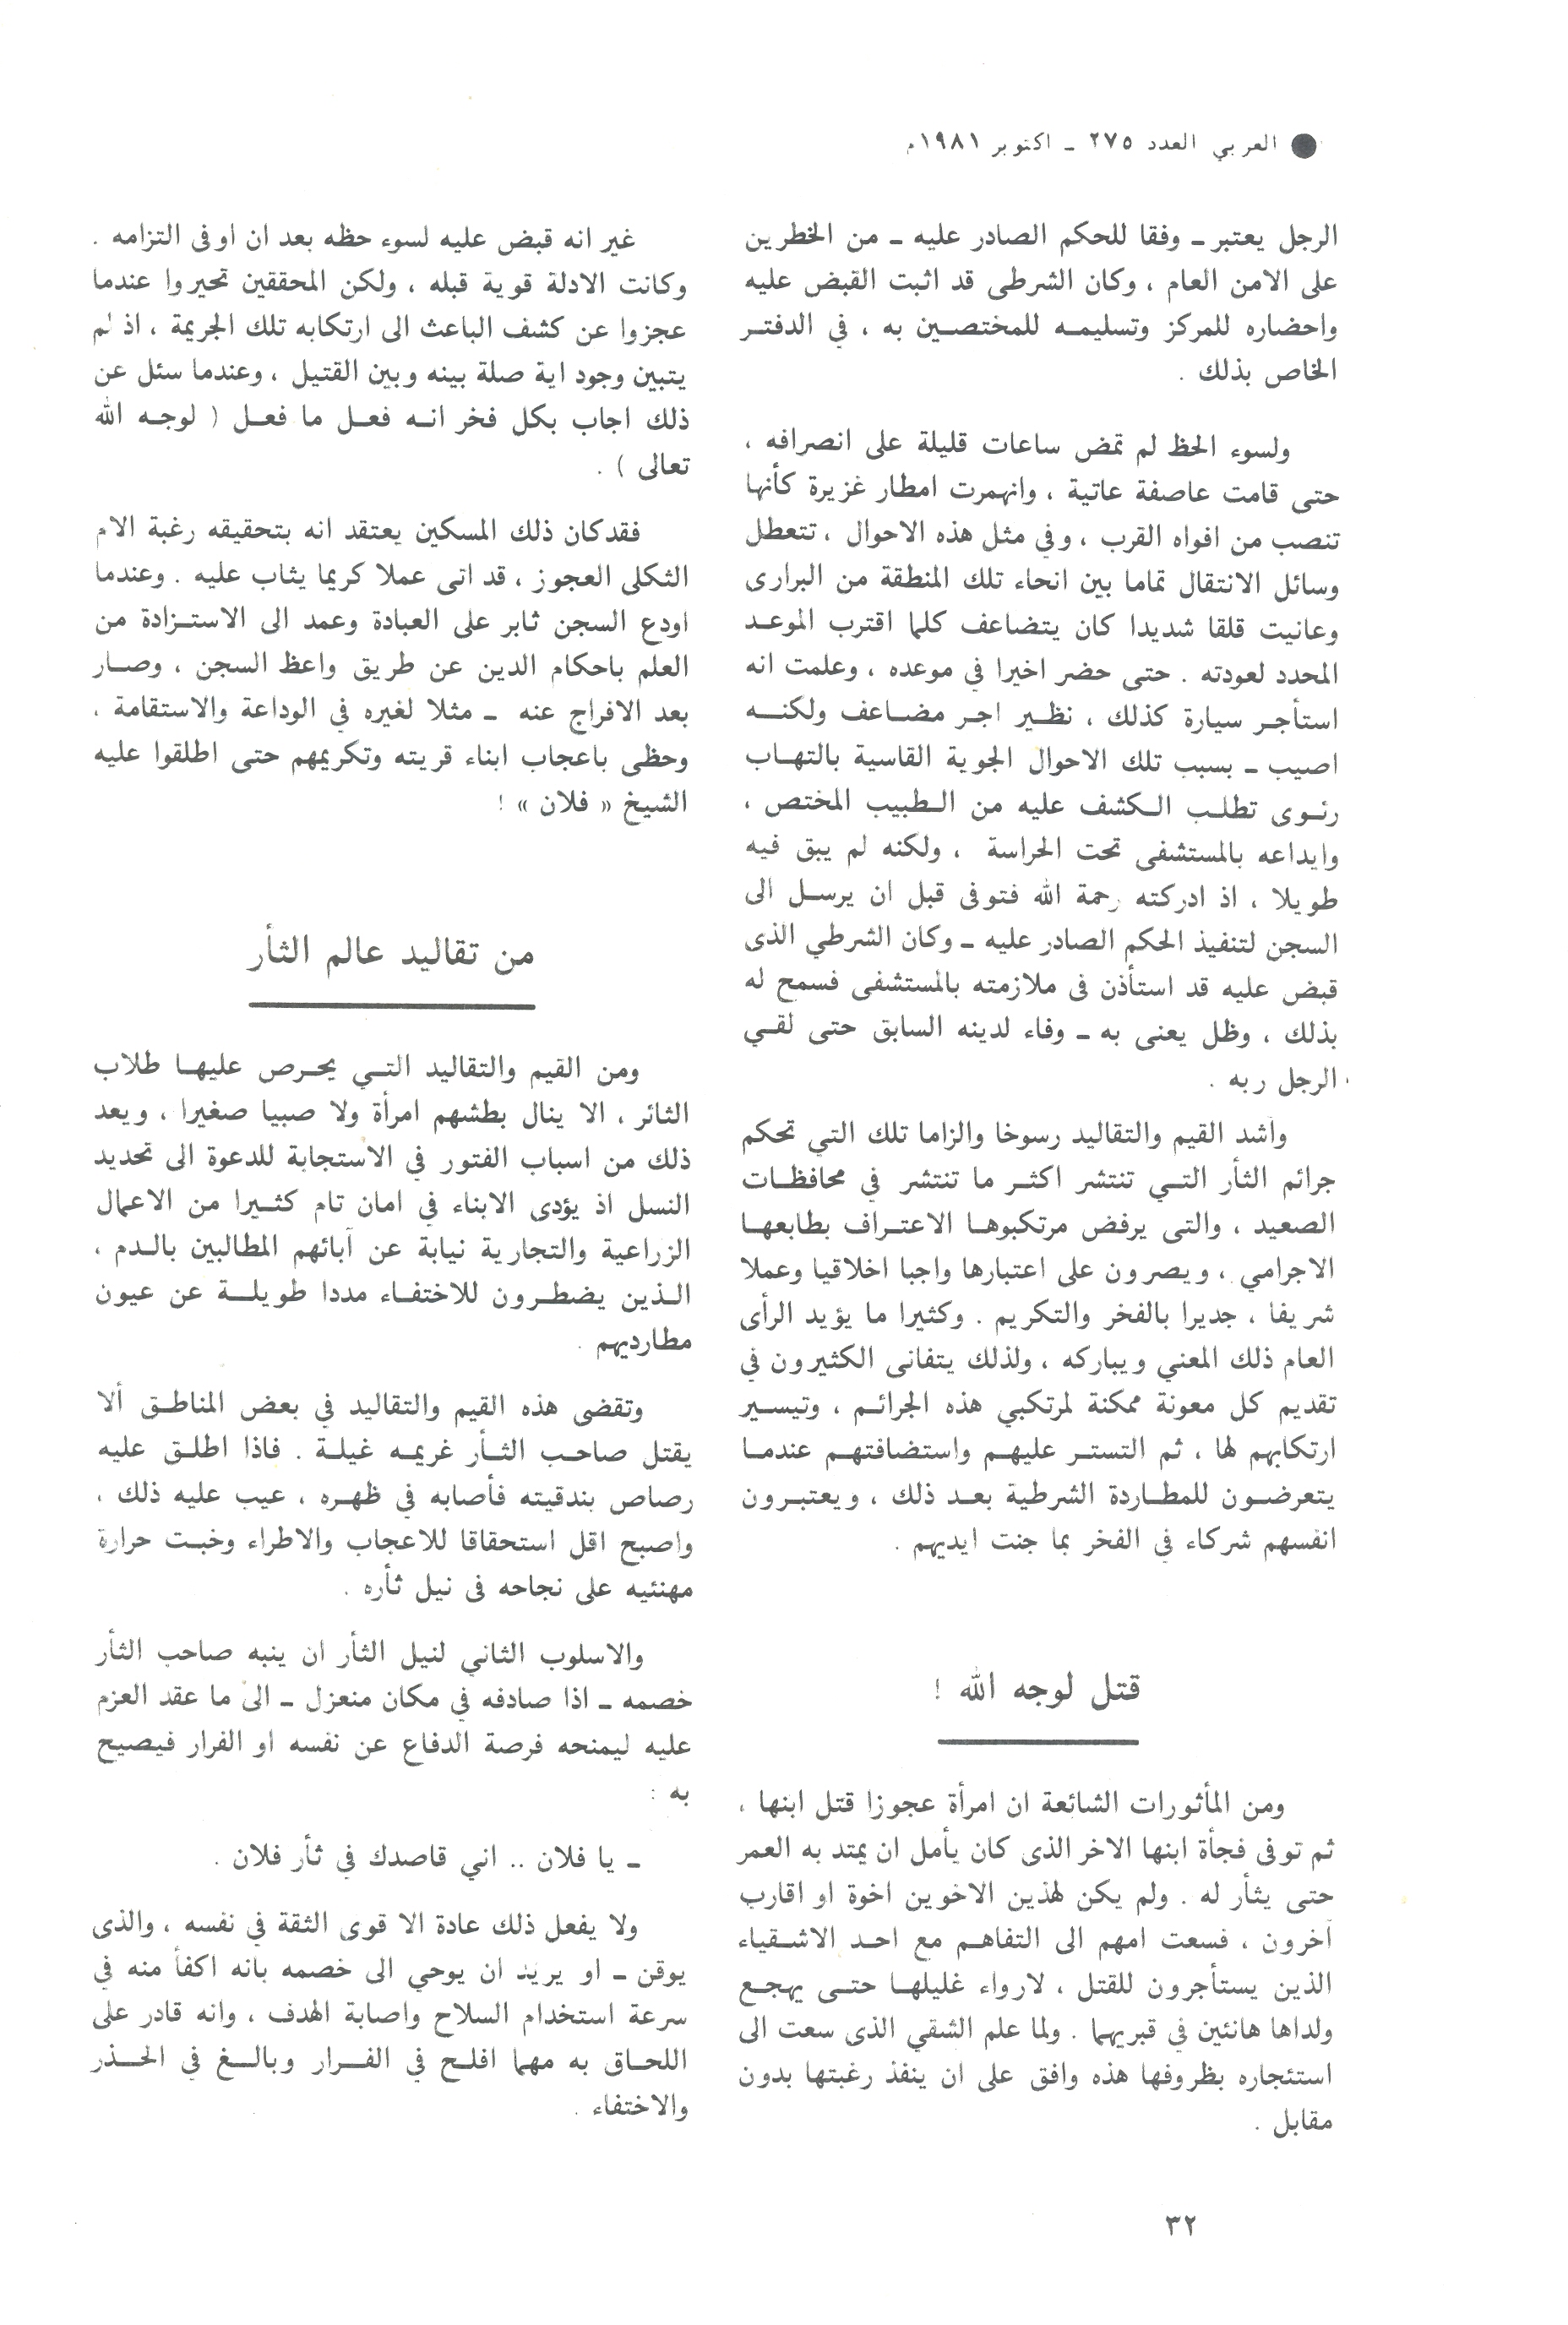 العربي العدد ٢٧٥ ـ اكتوبر ١٩٨١م
الرجل يعتبر ـ وفقا للحكم الصادر عليه ـ من الخطرين
على الامن العام ، وكان الشرطى قد اثبت القبض عليه
واحضاره للمركز وتسليمه للمختصين به ، في الدفتر
الخاص بذلك .
ولسوء الحظ لم تمض ساعات قليلة على انصرافه ،
حتى قامت عاصفة عاتية ، وانهمرت امطار غزيرة كأنها
تنصب من افواه القرب ، وفي مثل هذه الاحوال ، تتعطل
وسائل الانتقال تماما بين انحاء تلك المنطقة من البرارى
وعانيت قلقا شديدا كان يتضاعف كلما اقترب الموعد
المحدد لعودته . حتى حضر اخيرا في موعده ، وعلمت انه
استأجر سيارة كذلك ، نظير اجر مضاعف ولكنه
اصيب ـ بسبب تلك الاحوال الجوية القاسية بالتهاب
رئوى تطلب الكشف عليه من الطبيب المختص ،
وايداعه بالمستشفى تحت الحراسة ، ولكنه لم يبق فيه
طويلا ، اذ ادركته رحمة الله فتوفى قبل ان يرسل الى
السجن لتنفيذ الحكم الصادر عليه ـ وكان الشرطي الذى
قبض عليه قد استأذن فى ملازمته بالمستشفى فسمح له
بذلك ، وظل يعنى به ـ وفاء لدينه السابق حتى لقي
الرجل ربه .
وأشد القيم والتقاليد رسوخا والزاما تلك التي تحكم
جرائم الثأر التي تنتشر اكثر ما تنتشر في محافظات
الصعيد ، والتى يرفض مرتكبوها الاعتراف بطابعها
الاجرامي ، ويصرون على اعتبارها واجبا اخلاقيا وعملا
شريفا ، جديرا بالفخر والتكريم . وكثيرا ما يؤيد الرأى
العام ذلك المعني ويباركه ، ولذلك يتفانى الكثيرون في
تقديم كل معونة ممكنة لمرتكبي هذه الجرائم ، وتيسير
ارتكابهم لها ، ثم التستر عليهم واستضافتهم عندما
يتعرضون للمطاردة الشرطية بعد ذلك ، ويعتبرون
انفسهم شركاء في الفخر بما جنت ايديهم .
قتل لوجه الله !
ومن المأثورات الشائعة ان امرأة عجوزا قتل ابنها ،
ثم توفى فجأة ابنها الاخر الذى كان يأمل ان يمتد به العمر
حتى يثأر له . ولم يكن لهذين الاخوين اخوة او اقارب
آخرون ، فسعت امهم الى التفاهم مع احد الاشقياء
الذين يستأجرون للقتل ، لارواء غليلها حتى يهجع
ولداها هانئين في قبريهما . ولما علم الشقي الذى سعت الى
استئجاره بظروفها هذه وافق على ان ينفذ رغبتها بدون
مقابل .
غير انه قبض عليه لسوء حظه بعد ان اوفى التزامه .
وكانت الادلة قوية قبله ، ولكن المحققين تحيروا عندما
عجزوا عن كشف الباعث الى ارتكابه تلك الجريمة ، اذ لم
يتبين وجود اية صلة بينه وبين القتيل ، وعندما سئل عن
ذلك اجاب بكل فخر انه فعل ما فعل ( لوجه الله
تعالى ) .
فقد كان ذلك المسكين يعتقد انه بتحقيقه رغبة الام
الثكلى العجوز ، قد اتى عملا كريما يثاب عليه . وعندما
اودع السجن ثابر على العبادة وعمد الى الاستزادة من
العلم باحكام الدين عن طريق واعظ السجن ، وصار
بعد الافراج عنه ـ مثلا لغيره في الوداعة والاستقامة ،
وحظى باعجاب ابناء قريته وتكريمهم حتى اطلقوا عليه
الشيخ « فلان » !
من تقاليد عالم الثأر
ومن القيم والتقاليد التي يحرص عليها طلاب
الثائر ، الا ينال بطشهم امرأة ولا صبيا صغيرا ، ويعد
ذلك من اسباب الفتور في الاستجابة للدعوة الى تحديد
النسل اذ يؤدى الابناء في امان تام كثيرا من الاعمال
الزراعية والتجارية نيابة عن آبائهم المطالبين بالدم ،
الذين يضطرون للاختفاء مددا طويلة عن عيون
مطارديهم .
وتقضى هذه القيم والتقاليد في بعض المناطق ألا
يقتل صاحب الثأر غريمه غيلة . فاذا اطلق عليه
رصاص بندقيته فأصابه في ظهره ، عيب عليه ذلك ،
واصبح اقل استحقاقا للاعجاب والاطراء وخبت حرارة
مهنئيه على نجاحه فى نيل ثأره .
والاسلوب الثاني لنيل الثأر ان ينبه صاحب الثأر
خصمه ـ اذا صادفه في مكان منعزل ـ الى ما عقد العزم
عليه ليمنحه فرصة الدفاع عن نفسه او الفرار فيصيح
به :
ـ يا فلان .. اني قاصدك في ثأر فلان .
ولا يفعل ذلك عادة الا قوى الثقة في نفسه ، والذى
يوقن ـ او يريد ان يوحي الى خصمه بانه اكفأ منه في
سرعة استخدام السلاح واصابة الهدف ، وانه قادر على
اللحاق به مهما افلح في الفرار وبالغ في الحذر
والاختفاء .
٣٢